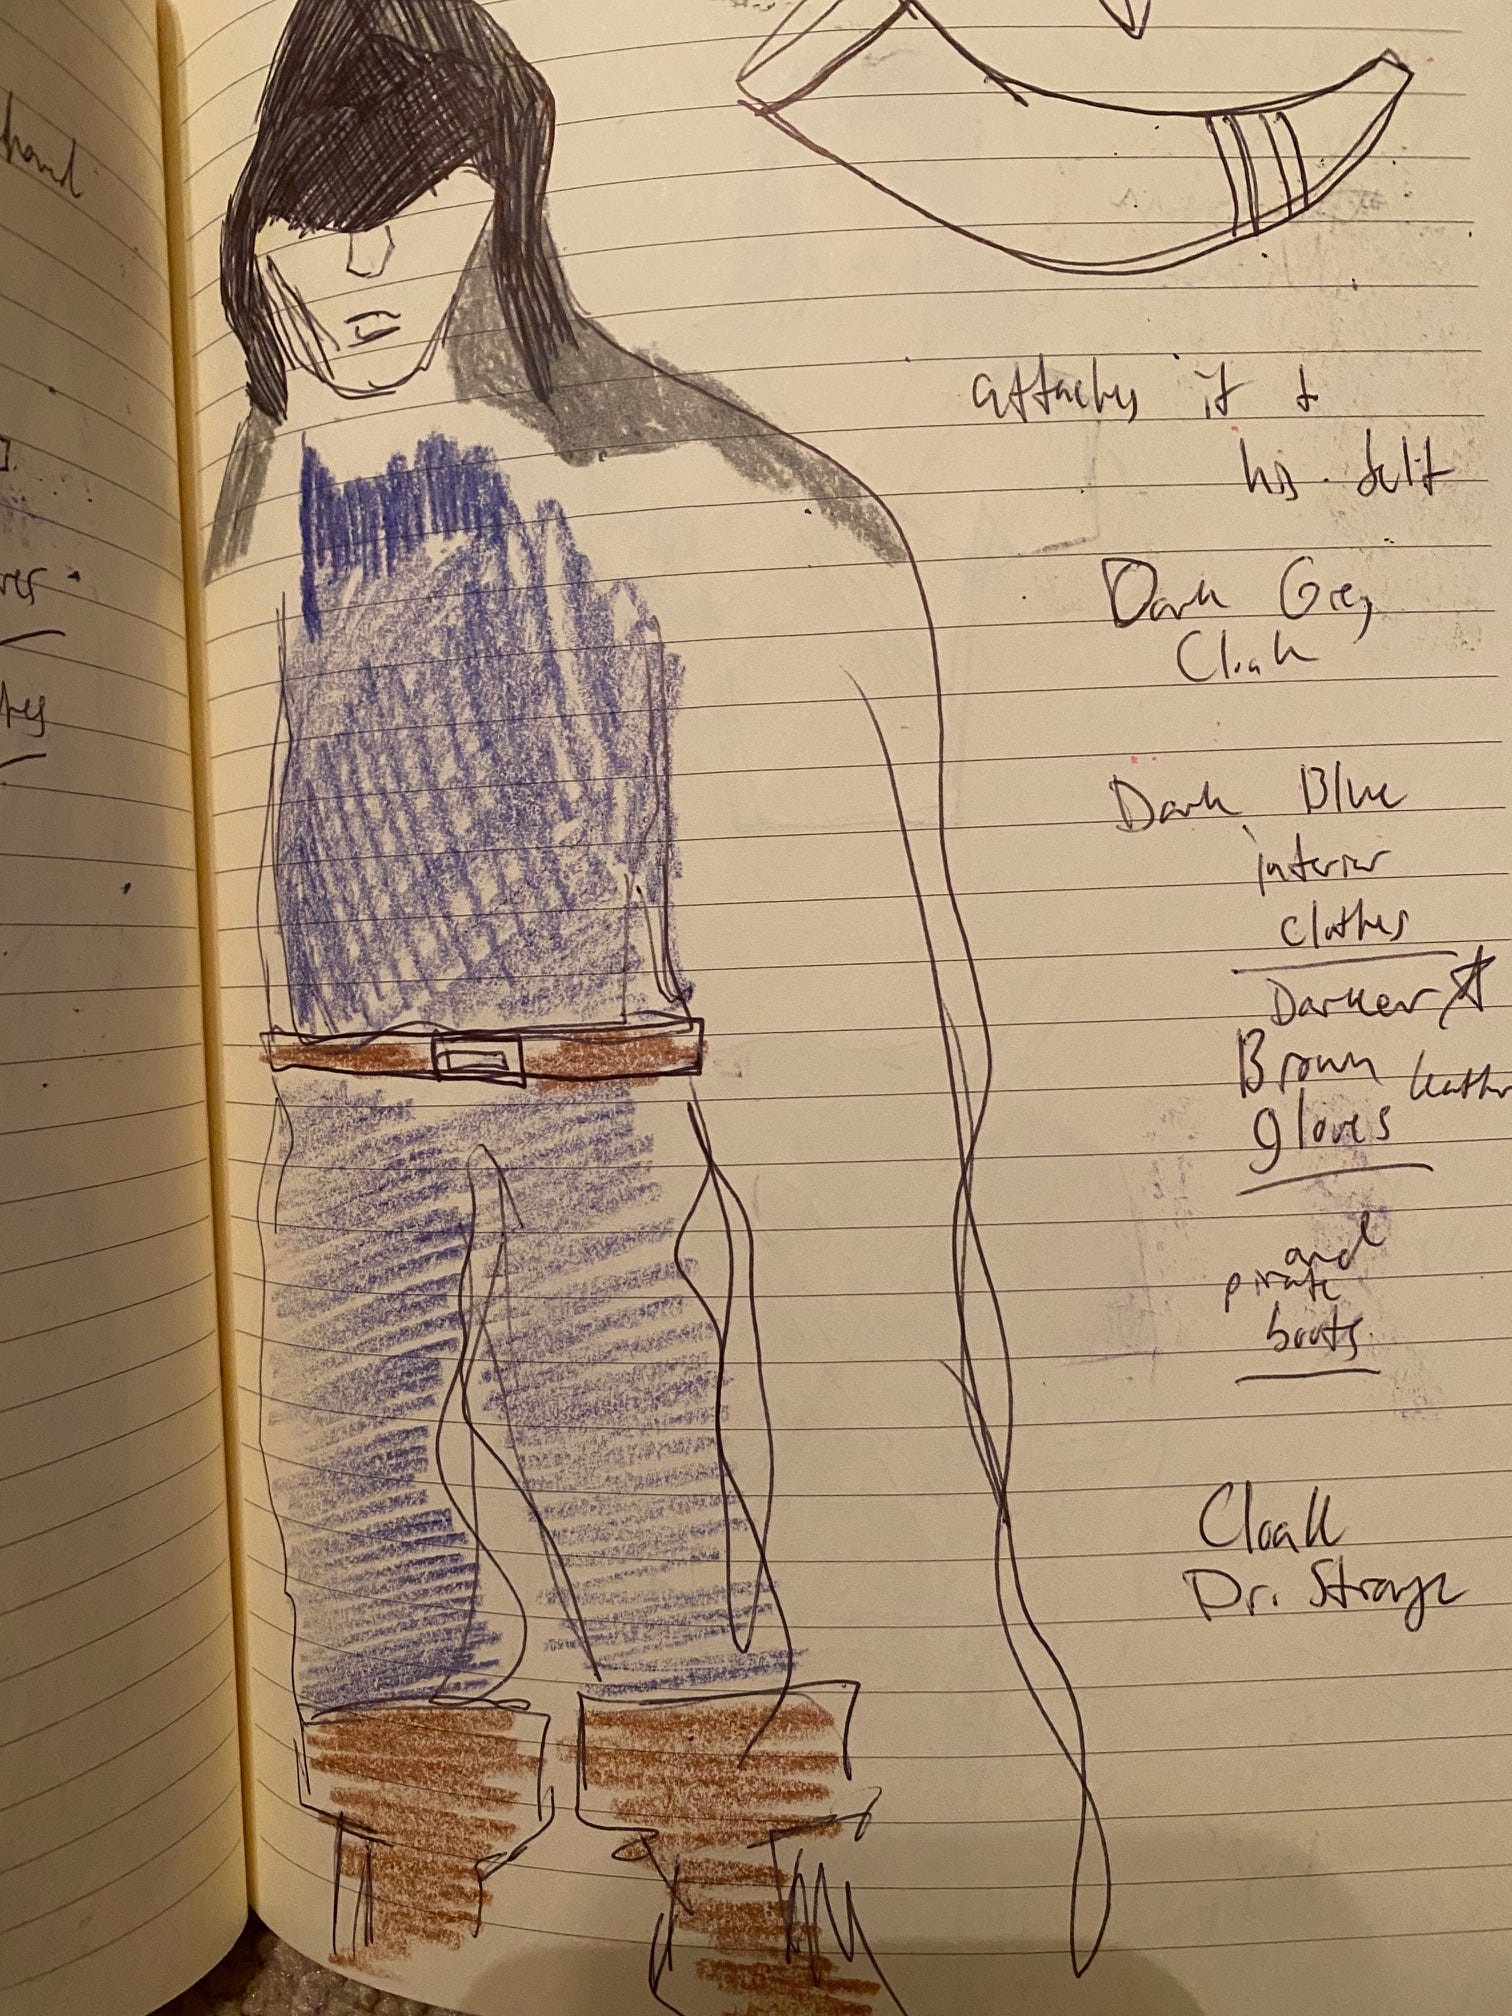 hand
attaches it to
his belt
Dark Grey
Cloak
Dark Blue
interior
clothes
Darker
Brown leather
gloves
and
pirate
boots.
Cloak
Dr. Strange